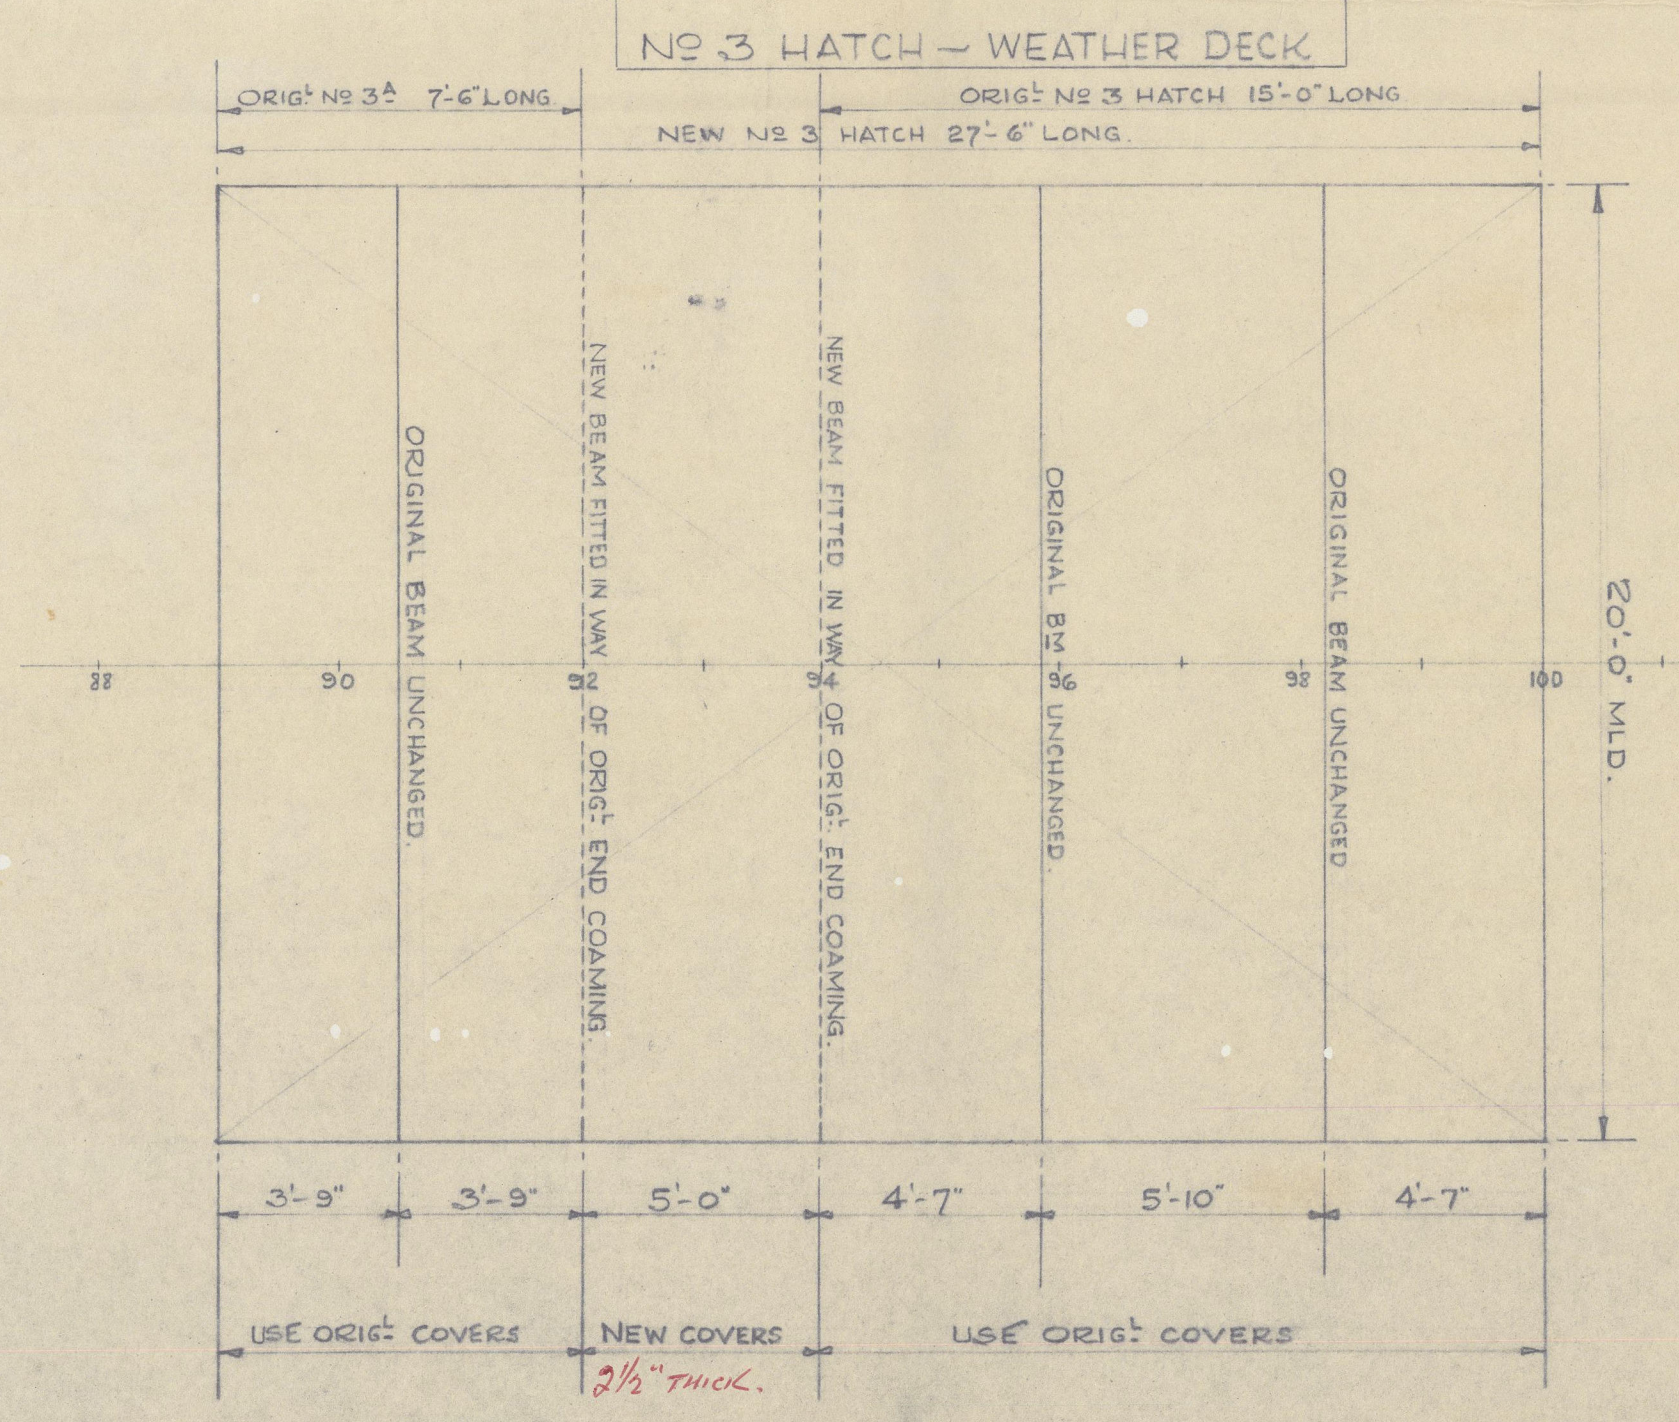 Nº 3 HATCH – WEATHER DECK
ORIGᴸ Nº 3ᴬ 7'-6" LONG
ORIGᴸ Nº 3 HATCH 15'-0" LONG
NEW Nº 3 HATCH 27'-6" LONG.
ORIGINAL BEAM UNCHANGED.
NEW BEAM FITTED IN WAY OF ORIGᴸ END COAMING.
NEW BEAM FITTED IN WAY OF ORIGᴸ. END COAMING.
ORIGINAL BM UNCHANGED.
ORIGINAL BEAM UNCHANGED
20'-0" MLD.
88 90 92 94 96 98 100
3'-9" 3'-9" 5'-0" 4'-7" 5'-10" 4'-7"
USE ORIGᴸ COVERS NEW COVERS USE ORIGᴸ COVERS
2½" THICK.